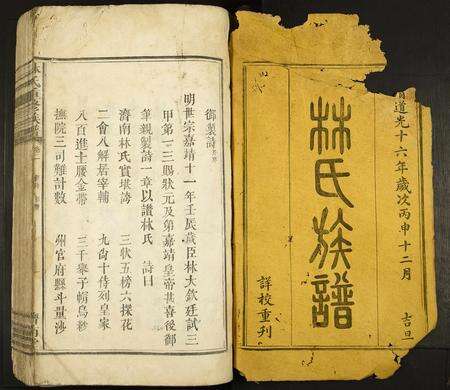 道光十六年歲次丙申十二月
吉旦
林氏族譜
詳校重刊
御製詩
明世宗嘉靖十一年壬辰歲臣林大欽廷試三
甲第一三賜狀元及第嘉靖皇帝甚喜後御
筆親製詩一章以讚林氏 詩曰
濟南林氏實堪誇 三狀五榜六探花
二會八解居宰輔 九尚十侍列皇家
八百進士腰金帶 三千舉子帽烏紗
撫院三司難計數 州官府縣斗量沙